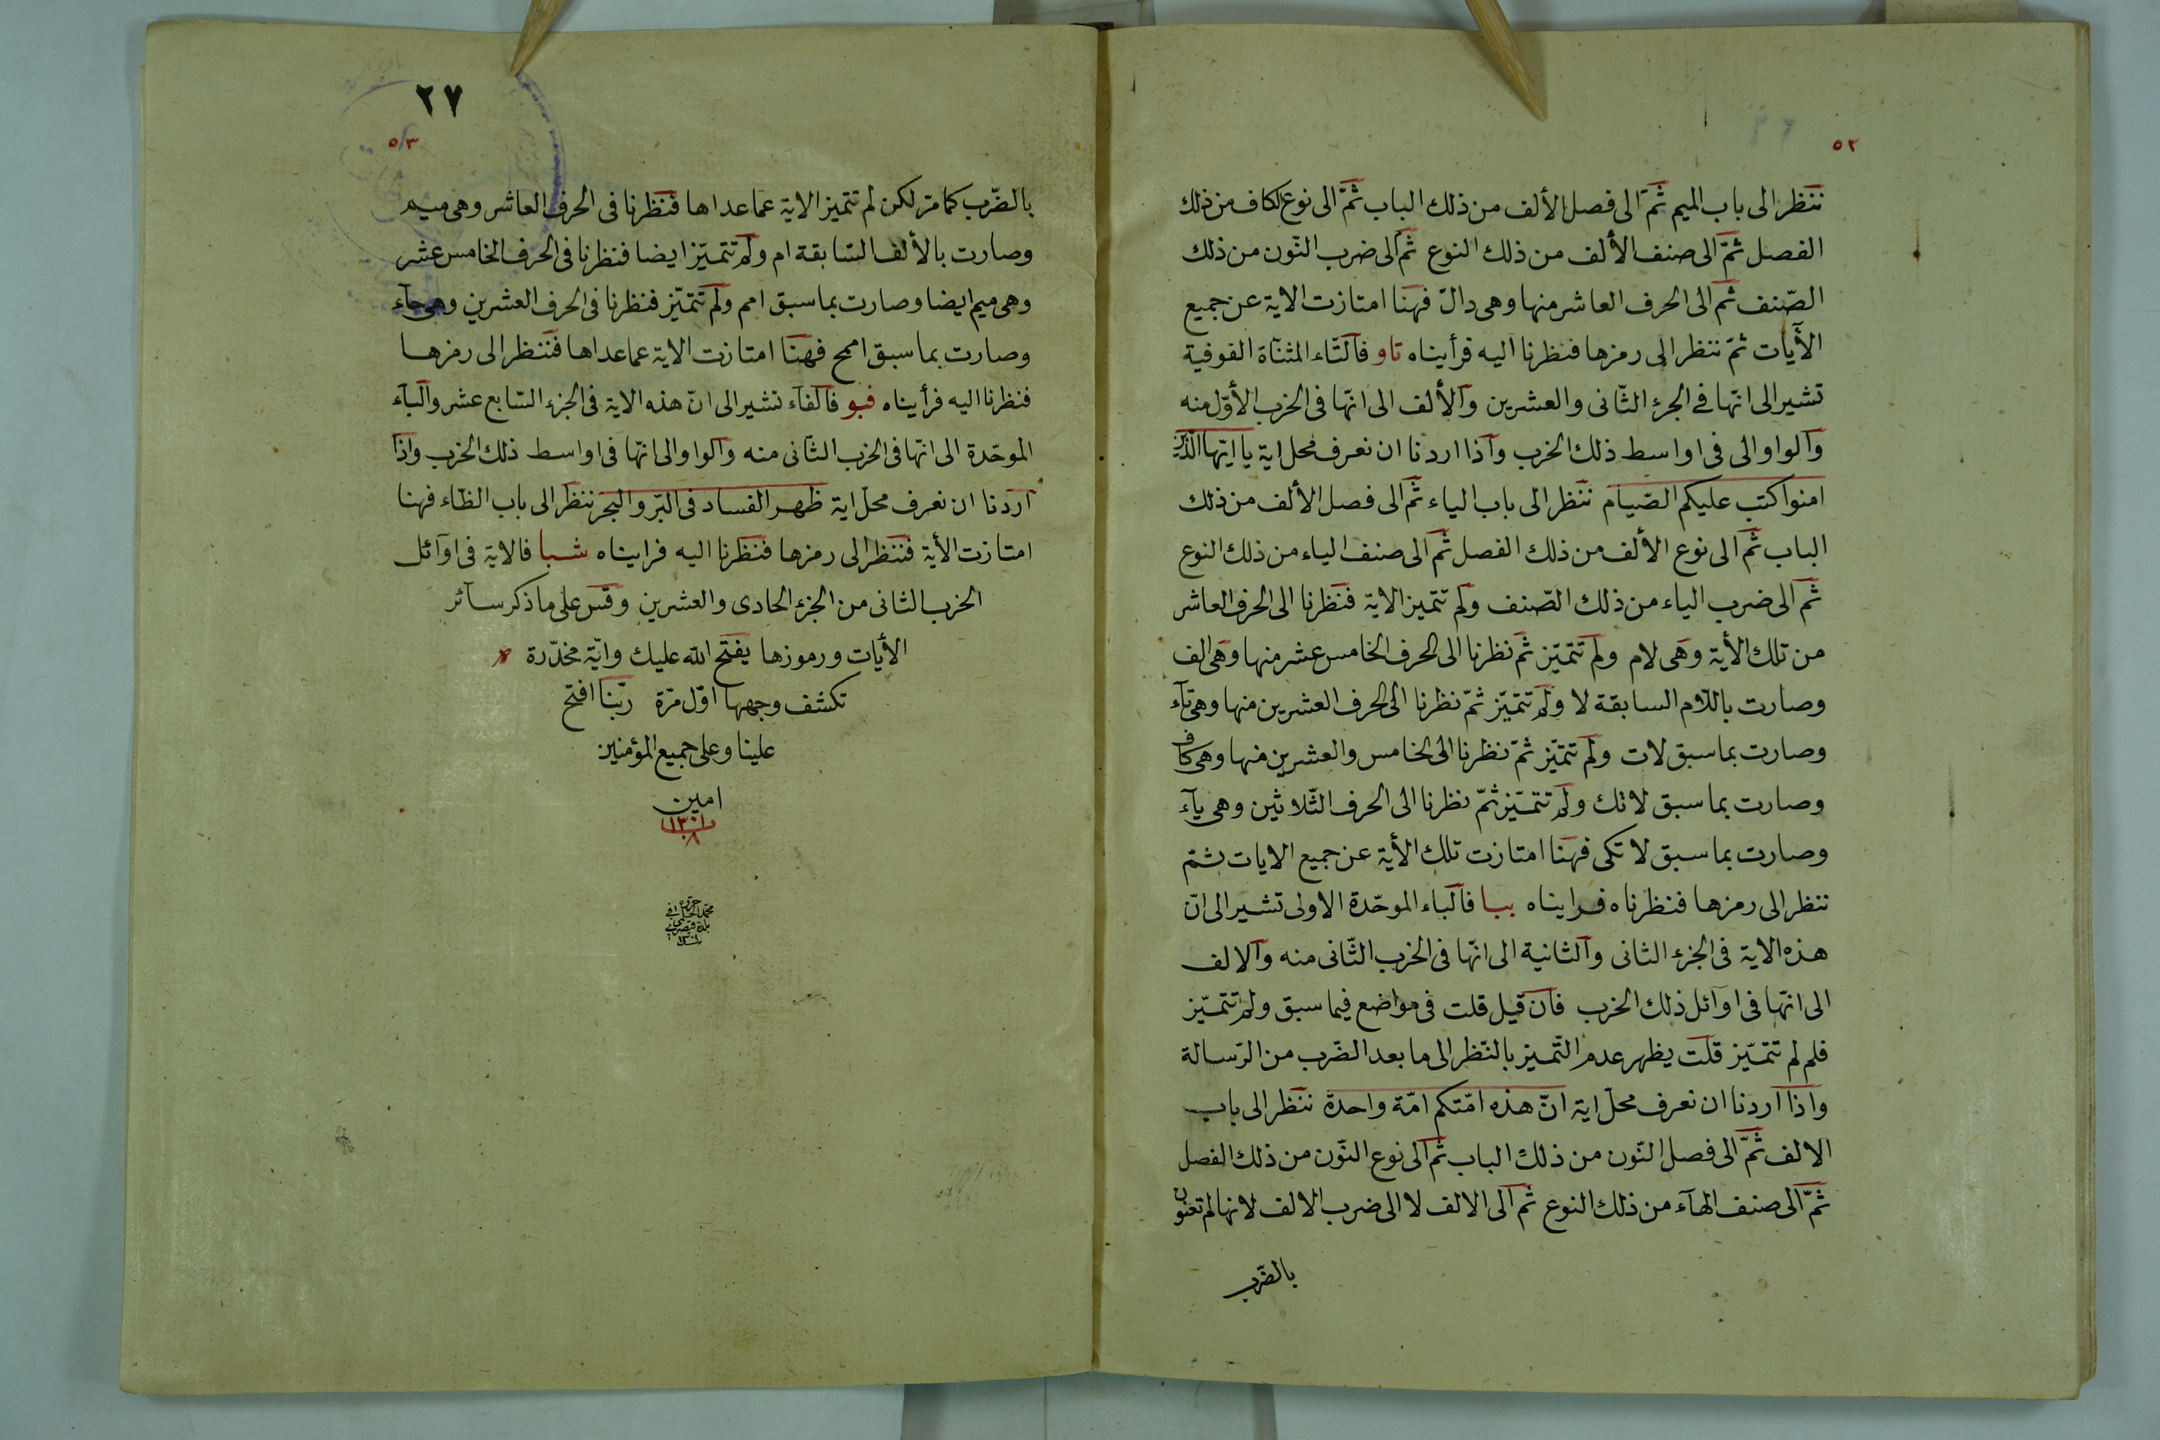 ٥٢
ننظر الى باب الميم ثمّ الى فصل الألف من ذلك الباب ثمّ الى نوع الكاف من ذلك
الفصل ثمّ الى صنف الألف من ذلك النوع ثمّ الى ضرب النّون من ذلك
الصّنف ثمّ الى الحرف العاشر منها وهى دالّ فهنا امتازت الاية عن جميع
الأيات ثمّ ننظر الى رمزها فنظرنا اليه فرأيناه تاو فالتّاء المثنّاة الفوقية
تشير الى انّها فى الجزء الثّانى والعشرين والألف الى انّها فى الحزب الأوّل منه
والواو الى فى اواسط ذلك الحزب واذا اردنا ان نعرف محل اية يا ايّها الذين
امنوا كتب عليكم الصّيام ننظر الى باب الياء ثمّ الى فصل الألف من ذلك
الباب ثمّ الى نوع الألف من ذلك الفصل ثمّ الى صنف الياء من ذلك النوع
ثمّ الى ضرب الياء من ذلك الصّنف ولم تتميز الاية فنظرنا الى الحرف العاشر
من تلك الأية وهى لام ولم تتميّز ثمّ نظرنا الى الحرف الخامس عشر منها وهى الف
وصارت باللّام السابقة لا ولم تتميّز ثمّ نظرنا الى الحرف العشرين منها وهى تاء
وصارت بما سبق لات ولم تتميّز ثمّ نظرنا الى الخامس والعشرين منها وهى كاف
وصارت بما سبق لاتك ولم تتميّز ثمّ نظرنا الى الحرف الثّلاثين وهى ياء
وصارت بما سبق لا تكى فهنا امتازت تلك الأية عن جميع الايات ثمّ
ننظر الى رمزها فنظرناه فرايناه ببا فالباء الموحّدة الاولى تشير الى انّ
هذه الاية فى الجزء الثانى والثانية الى انّها فى الحزب الثّانى منه والالف
الى انّها فى اوائل ذلك الحزب فان قيل قلت فى مواضع فيما سبق ولم تتميّز
فلم لم تتميّز قلت يظهر عدم التّميز بالنّظر الى ما بعد الضّرب من الرّسالة
واذا اردنا ان نعرف محلّ اية انّ هذه امّتكم امّة واحدة ننظر الى باب
الالف ثمّ الى فصل النّون من ذلك الباب ثمّ الى نوع النّون من ذلك الفصل
ثمّ الى صنف الهاء من ذلك النوع ثمّ الى الالف لا الى ضرب الالف لانها لم تعنون
بالضّرب
٢٧
٥٣
بالضّرب كما مرّ لكن لم تتميز الاية عما عداها فنظرنا فى الحرف العاشر وهى ميم
وصارت بالألف السّابقة ام ولم تتميّز ايضا فنظرنا فى الحرف الخامس عشر
وهى ميم ايضا وصارت بما سبق امم ولم تتميّز فنظرنا فى الحرف العشرين وهى حاء
وصارت بما سبق اممح فهنا امتازت الاية عما عداها فننظر الى رمزها
فنظرنا اليه فرأيناه فبو فالفاء تشير الى انّ هذه الاية فى الجزء السّابع عشر والباء
الموحّدة الى انّها فى الحزب الثانى منه والواو الى انّها فى اواسط ذلك الحزب واذا
اردنا ان نعرف محلّ اية ظهر الفساد فى البرّ والبحر ننظر الى باب الظاء فهنا
امتازت الأية فننظر الى رمزها فنظرنا اليه فرايناه شبا فالاية فى اوائل
الحزب الثانى من الجزء الحادى والعشرين وقس على ما ذكر سائر
الأيات ورموزها يفتح الله عليك وايّة مخدّرة
تكشف وجهها اوّل مرّة ربّنا افتح
علينا وعلى جميع المؤمنين
امين
١٣٠١